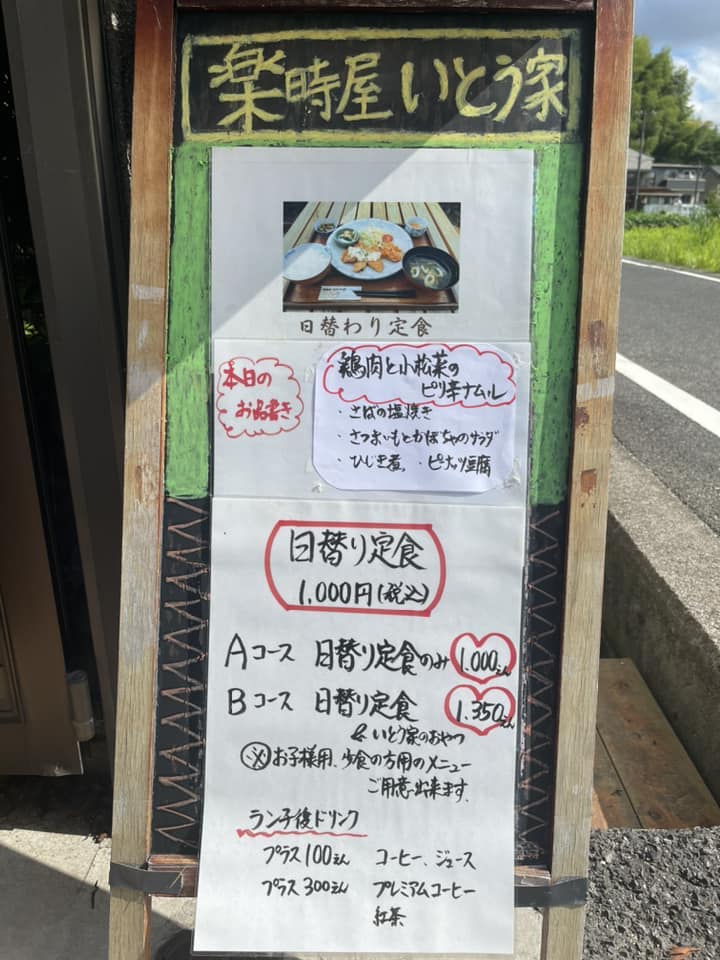 楽時屋 いとう家
日替わり定食
本日の
お品書き
鶏肉と小松菜の
ピリ辛ナムル
・さばの塩焼き
・さつまいもとかぼちゃのサラダ
・ひじき煮 ・ピーナッツ豆腐
日替り定食
1,000円(税込)
Aコース 日替り定食のみ 1.000えん
Bコース 日替り定食 1.350えん
& いとう家のおやつ
※お子様用、少食の方用のメニュー
ご用意出来ます。
ランチ後ドリンク
プラス100えん コーヒー、ジュース
プラス300えん プレミアムコーヒー
紅茶